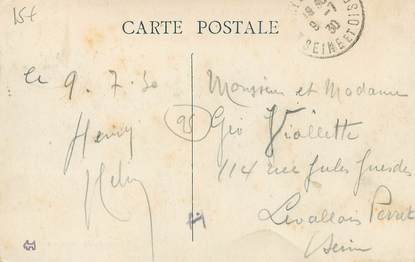 15f
CARTE POSTALE
SEINE ET OI
30
le 9.7.30
Henry
Monsieur et Madame
95
Géo Viallette
114 rue Jules Guesdes
Levallois Perret
(Seine